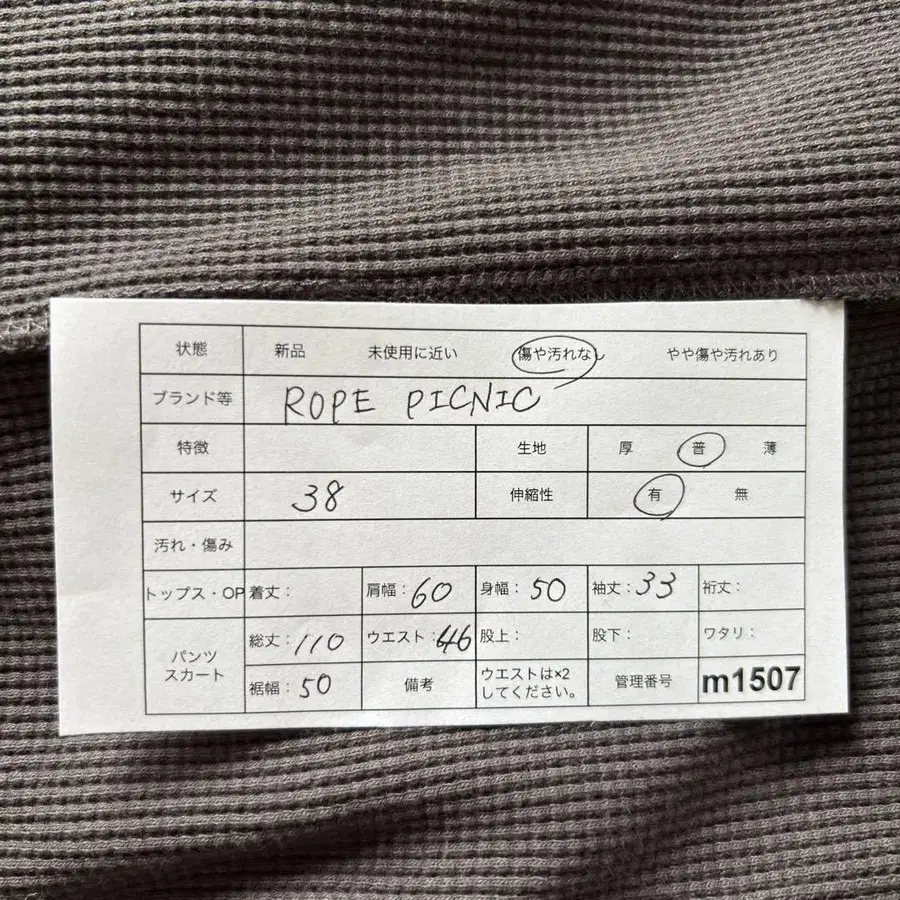 状態 新品 未使用に近い 傷や汚れなし やや傷や汚れあり
ブランド等 ROPE PICNIC
特徴 生地 厚 普 薄
サイズ 38 伸縮性 有 無
汚れ・傷み
トップス・OP 着丈： 肩幅：60 身幅：50 袖丈：33 裄丈：
パンツ スカート 総丈：110 ウエスト：46 股上： 股下： ワタリ：
裾幅：50 備考 ウエストは×2 管理番号 m1507
してください。